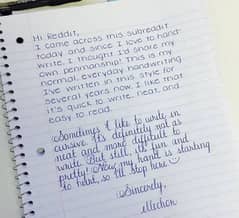 Hi Reddit,
I came across this subreddit
today and since I love to hand-
write, I thought I'd share my
own penmanship! This is my
normal everyday handwriting
I've written in this style for
several years now. I like that
it's quick to write, neat, and
easy to read.
Sometimes I like to write in
cursive. It's definitely not as
neat and more difficult to
write. But still, it's fun and
pretty! Now my hand is starting
to hurt, so I'll stop here
Sincerely,